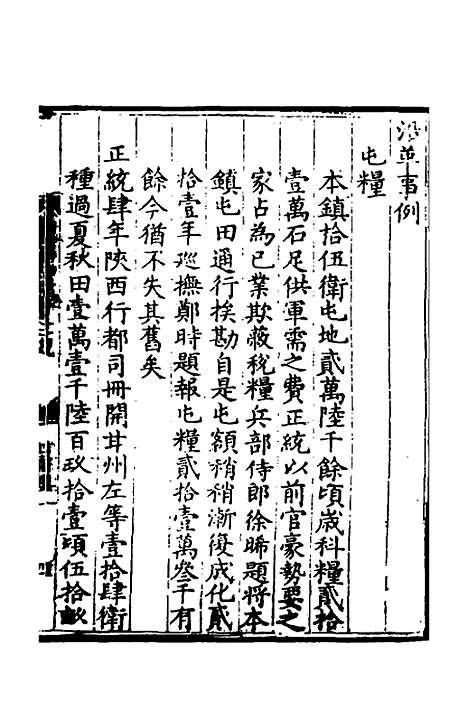 沿革事例
屯糧
本鎮拾伍衛屯地貳萬陸千餘頃歲科糧貳拾
壹萬石足供軍需之費正統以前官豪勢要之
家占為己業欺蔽稅糧兵部侍郎徐晞題將本
鎮屯田通行挨勘自是屯額稍稍漸復成化貳
拾壹年巡撫鄭時題報屯糧貳拾壹萬叁千有
餘今猶不失其舊矣
正統肆年陝西行都司冊開甘州左等壹拾肆衛
種過夏秋田壹萬壹千陸百玖拾壹頃伍拾畝